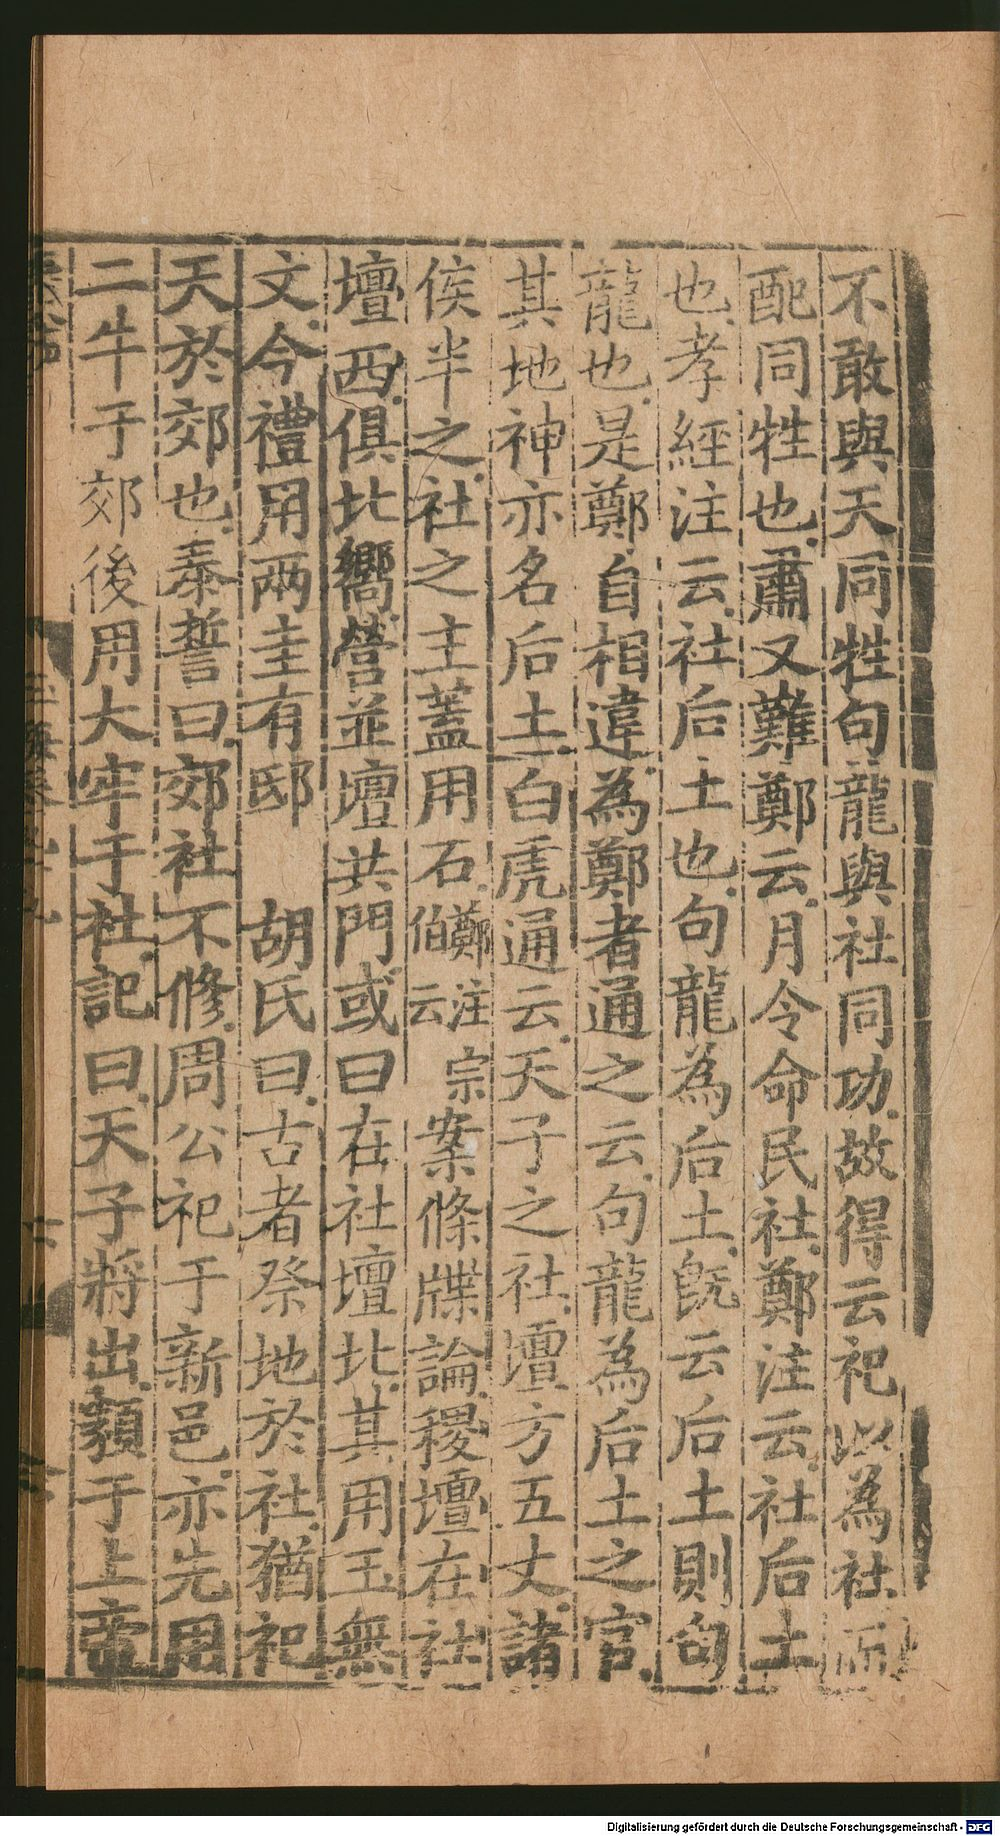 不敢與天同牲句龍與社同功故得云祀以為社而
配同牲也肅又難鄭云月令命民社鄭注云社后土
也孝經注云社后土也句龍為后土旣云后土則句
龍也是鄭自相違為鄭者通之云句龍為后土之官
其地神亦名后土白虎通云天子之社壇方五丈諸
侯半之社之主蓋用石鄭注宗伯云案條牒論稷壇在社
壇西俱北嚮營並壇共門或曰在社壇北其用玉無
文今禮用兩圭有邸　胡氏曰古者祭地於社猶祀
天於郊也泰誓曰郊社不修周公祀于新邑亦先用
二牛于郊後用大牢于社記曰天子將出類于上帝
Digitalisierung gefördert durch die Deutsche Forschungsgemeinschaft - DFG